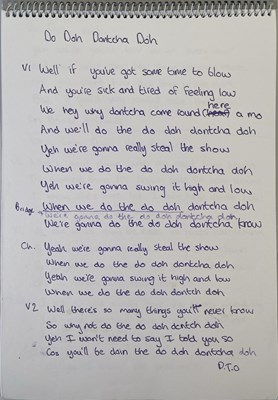 Do Doh Dontcha Doh
V1 Well if you've got some time to blow
And you're sick and tired of feeling low
We hey why dontcha come round here a mo
And we'll do the do doh dontcha doh
Yeh we're gonna really steal the show
When we do the do doh dontcha doh
Yeh we're gonna swing it high and low
When we do the do doh dontcha doh
Bridge We're gonna do the do doh dontcha doh
We're gonna do the do doh dontcha know
Ch. Yeah we're gonna really steal the show
When we do the do doh dontcha doh
Yeah we're gonna swing it high and low
When we do the do doh dontch doh
V2 Well there's so many things you'll never know
So why not do the do doh dontch doh
Yeh I won't need to say I told you so
Cos you'll be doin the do doh dontcha doh
P.T.O